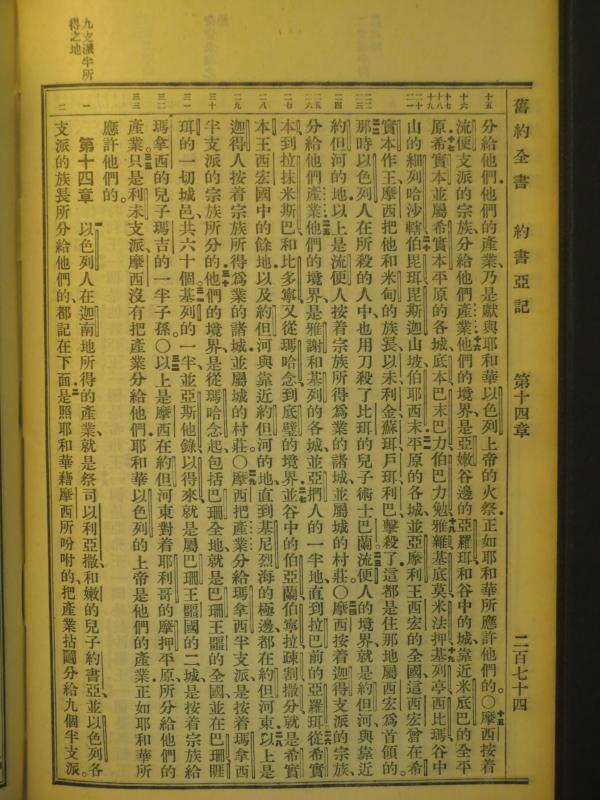 舊約全書 約書亞記 第十四章 二百七十四
十五 分給他們他們的產業、乃是獻與耶和華以色列上帝的火祭、正如耶和華所應許他們的。〇摩西按着
十六 流便支派的宗族分給他們產業他們的境界是亞嫩谷邊的亞羅珥和谷中的城靠近米底巴的全平
十七 十八 十九 原希實本並屬希實本平原的各城底本巴末巴力伯巴力勉雅雜基底莫米法押基列亭西比瑪谷中
二十 二一 山的細列哈沙轄伯毘珥毘斯迦山坡伯耶西末平原的各城並亞摩利王西宏的全國這西宏曾在希
實本作王摩西把他和米甸的族長、以未利金蘇珥戶珥利巴擊殺了這都是住那地屬西宏爲首領的。
二二 二三 那時以色列人在所殺的人中也用刀殺了比珥的兒子術士巴蘭流便人的境界就是約但河與靠近
二四 約但河的地以上是流便人按着宗族所得爲業的諸城並屬城的村莊〇摩西按着迦得支派的宗族、
二五 二六 分給他們產業他們的境界是雅謝和基列的各城並亞捫人的一半地直到拉巴前的亞羅珥從希實
二七 本到拉抹米斯巴和比多寧又從瑪哈念到底璧的境界並谷中的伯亞蘭伯寧拉疎割撒分就是希實
二八 本王西宏國中的餘地以及約但河與靠近約但河的地直到基尼烈海的極邊都在約但河東以上是
二九 迦得人按着宗族所得爲業的諸城並屬城的村莊〇摩西把產業分給瑪拿西半支派是按着瑪拿西
三十 半支派的宗族所分的他們的境界是從瑪哈念起包括巴珊全地就是巴珊王噩的全國並在巴珊睚
三一 珥的一切城邑共六十個基列的一半並亞斯他錄以得來就是屬巴珊王噩國的二城是按着宗族給
三二 瑪拿西的兒子瑪吉的一半子孫〇以上是摩西在約但河東對着耶利哥的摩押平原所分給他們的
三三 產業只是利未支派摩西沒有把產業分給他們耶和華以色列的上帝是他們的產業正如耶和華所
應許他們的。
九支派半所得之地
一 第十四章 以色列人在迦南地所得的產業就是祭司以利亞撒和嫩的兒子約書亞並以色列各
二 支派的族長所分給他們的、都記在下面是照耶和華藉摩西所吩咐的、把產業拈鬮分給九個半支派。